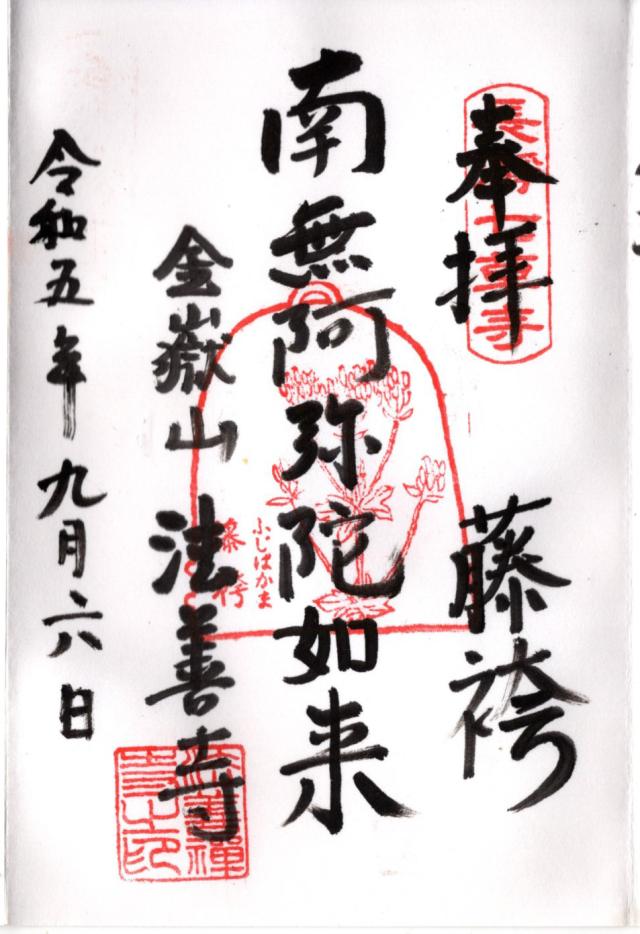 奉拝
藤袴
南無阿弥陀如来
金嶽山 法善寺
令和五年九月六日
ふじばかま
藤袴